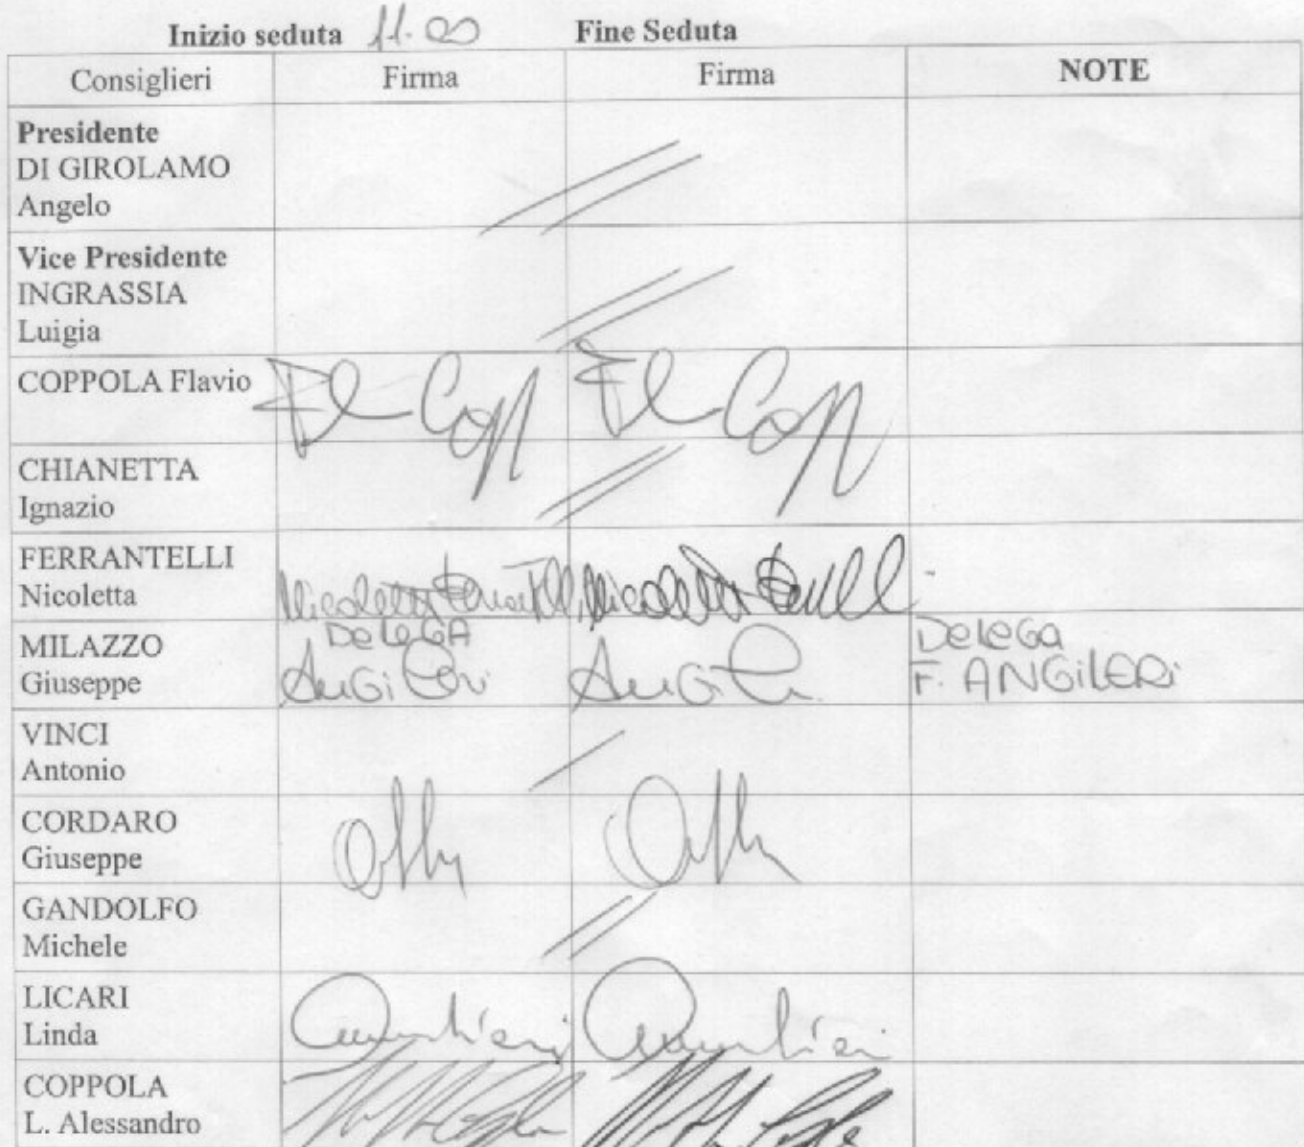 Inizio seduta 11.00 Fine Seduta
Consiglieri Firma Firma NOTE
Presidente
DI GIROLAMO
Angelo
Vice Presidente
INGRASSIA
Luigia
COPPOLA Flavio Fl Copp Fl Copp
CHIANETTA
Ignazio
FERRANTELLI
Nicoletta Nicoletta Nicoletta
MILAZZO DeLeGA DeLeGa
Giuseppe AnGiLeri F. ANGiLERi
VINCI
Antonio
CORDARO
Giuseppe
GANDOLFO
Michele
LICARI
Linda
COPPOLA
L. Alessandro